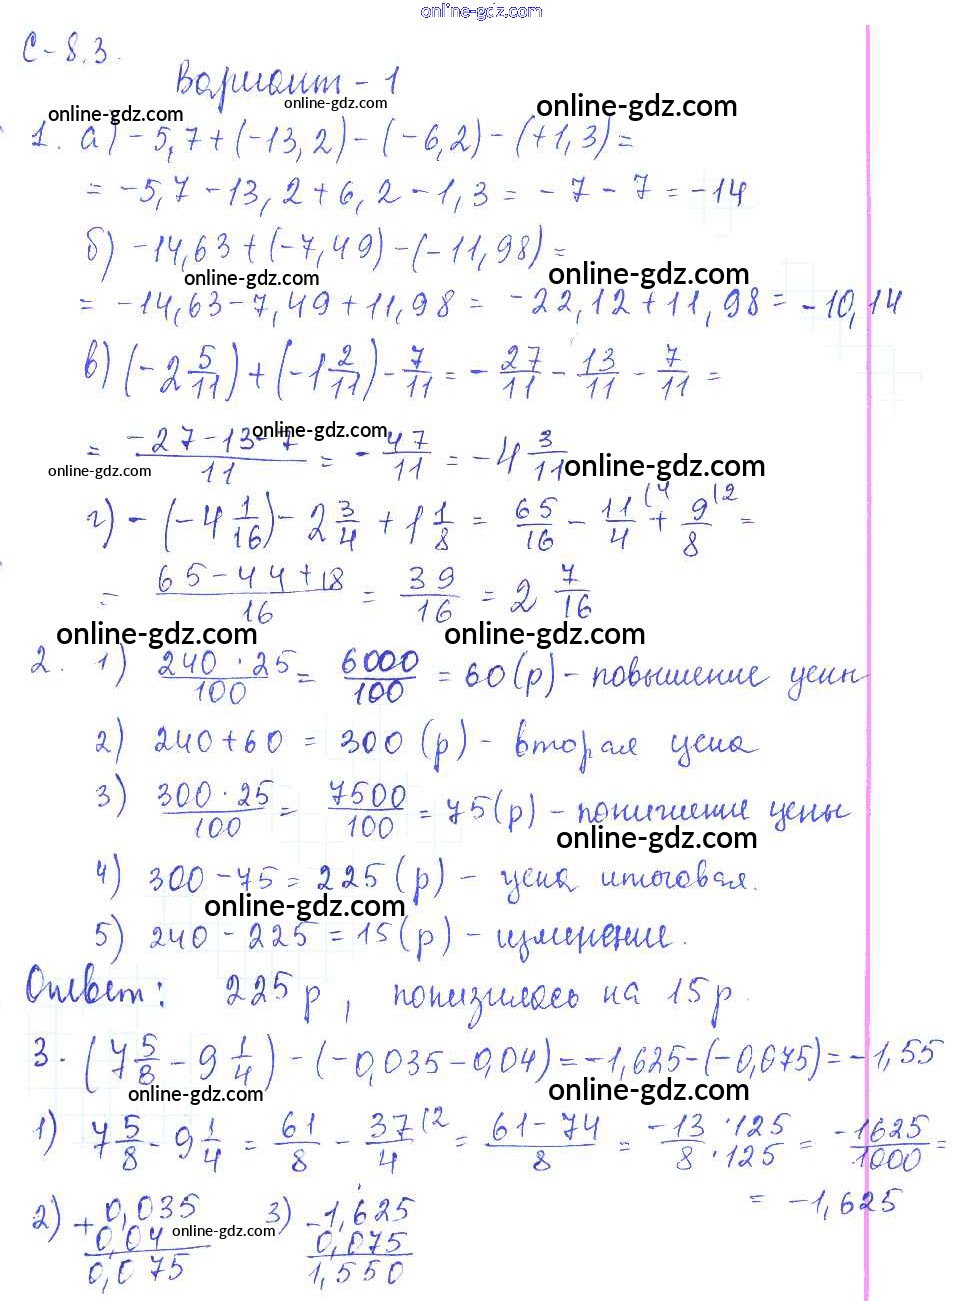 online-gdz.com
С-8.3.
Вариант-1
online-gdz.com
online-gdz.com
online-gdz.com
1. а) -5,7+(-13,2)-(-6,2)-(+1,3)=
= -5,7-13,2+6,2-1,3= -7-7=-14
б) -14,63+(-7,49)-(-11,98)=
online-gdz.com
online-gdz.com
= -14,63-7,49+11,98= -22,12+11,98=-10,14
в) (-2 5/11)+(-1 2/11)-7/11=-27/11-13/11-7/11=
online-gdz.com
= (-27-13-7)/11=-47/11=-4 3/11
online-gdz.com
online-gdz.com
г) -(-4 1/16)-2 3/4+1 1/8= 65/16-11/4 (4 + 9/8 (2 =
= (65-44+18)/16=39/16=2 7/16
online-gdz.com
online-gdz.com
2. 1) (240·25)/100=6000/100=60(р)-повышение цены
2) 240+60=300(р)-вторая цена
3) (300·25)/100=7500/100=75(р)-понижение цены
online-gdz.com
4) 300-75=225(р)-цена итоговая.
online-gdz.com
5) 240-225=15(р)-изменение.
Ответ: 225р, понизилась на 15р.
3. (7 5/8-9 1/4)-(-0,035-0,04)=-1,625-(-0,075)=-1,55
online-gdz.com
online-gdz.com
1) 7 5/8-9 1/4=61/8-37/4 (2 =(61-74)/8=(-13·125)/(8·125)=-1625/1000=
= -1,625
2) +0,035
0,04
0,075
online-gdz.com
3) -1,625
0,075
1,550